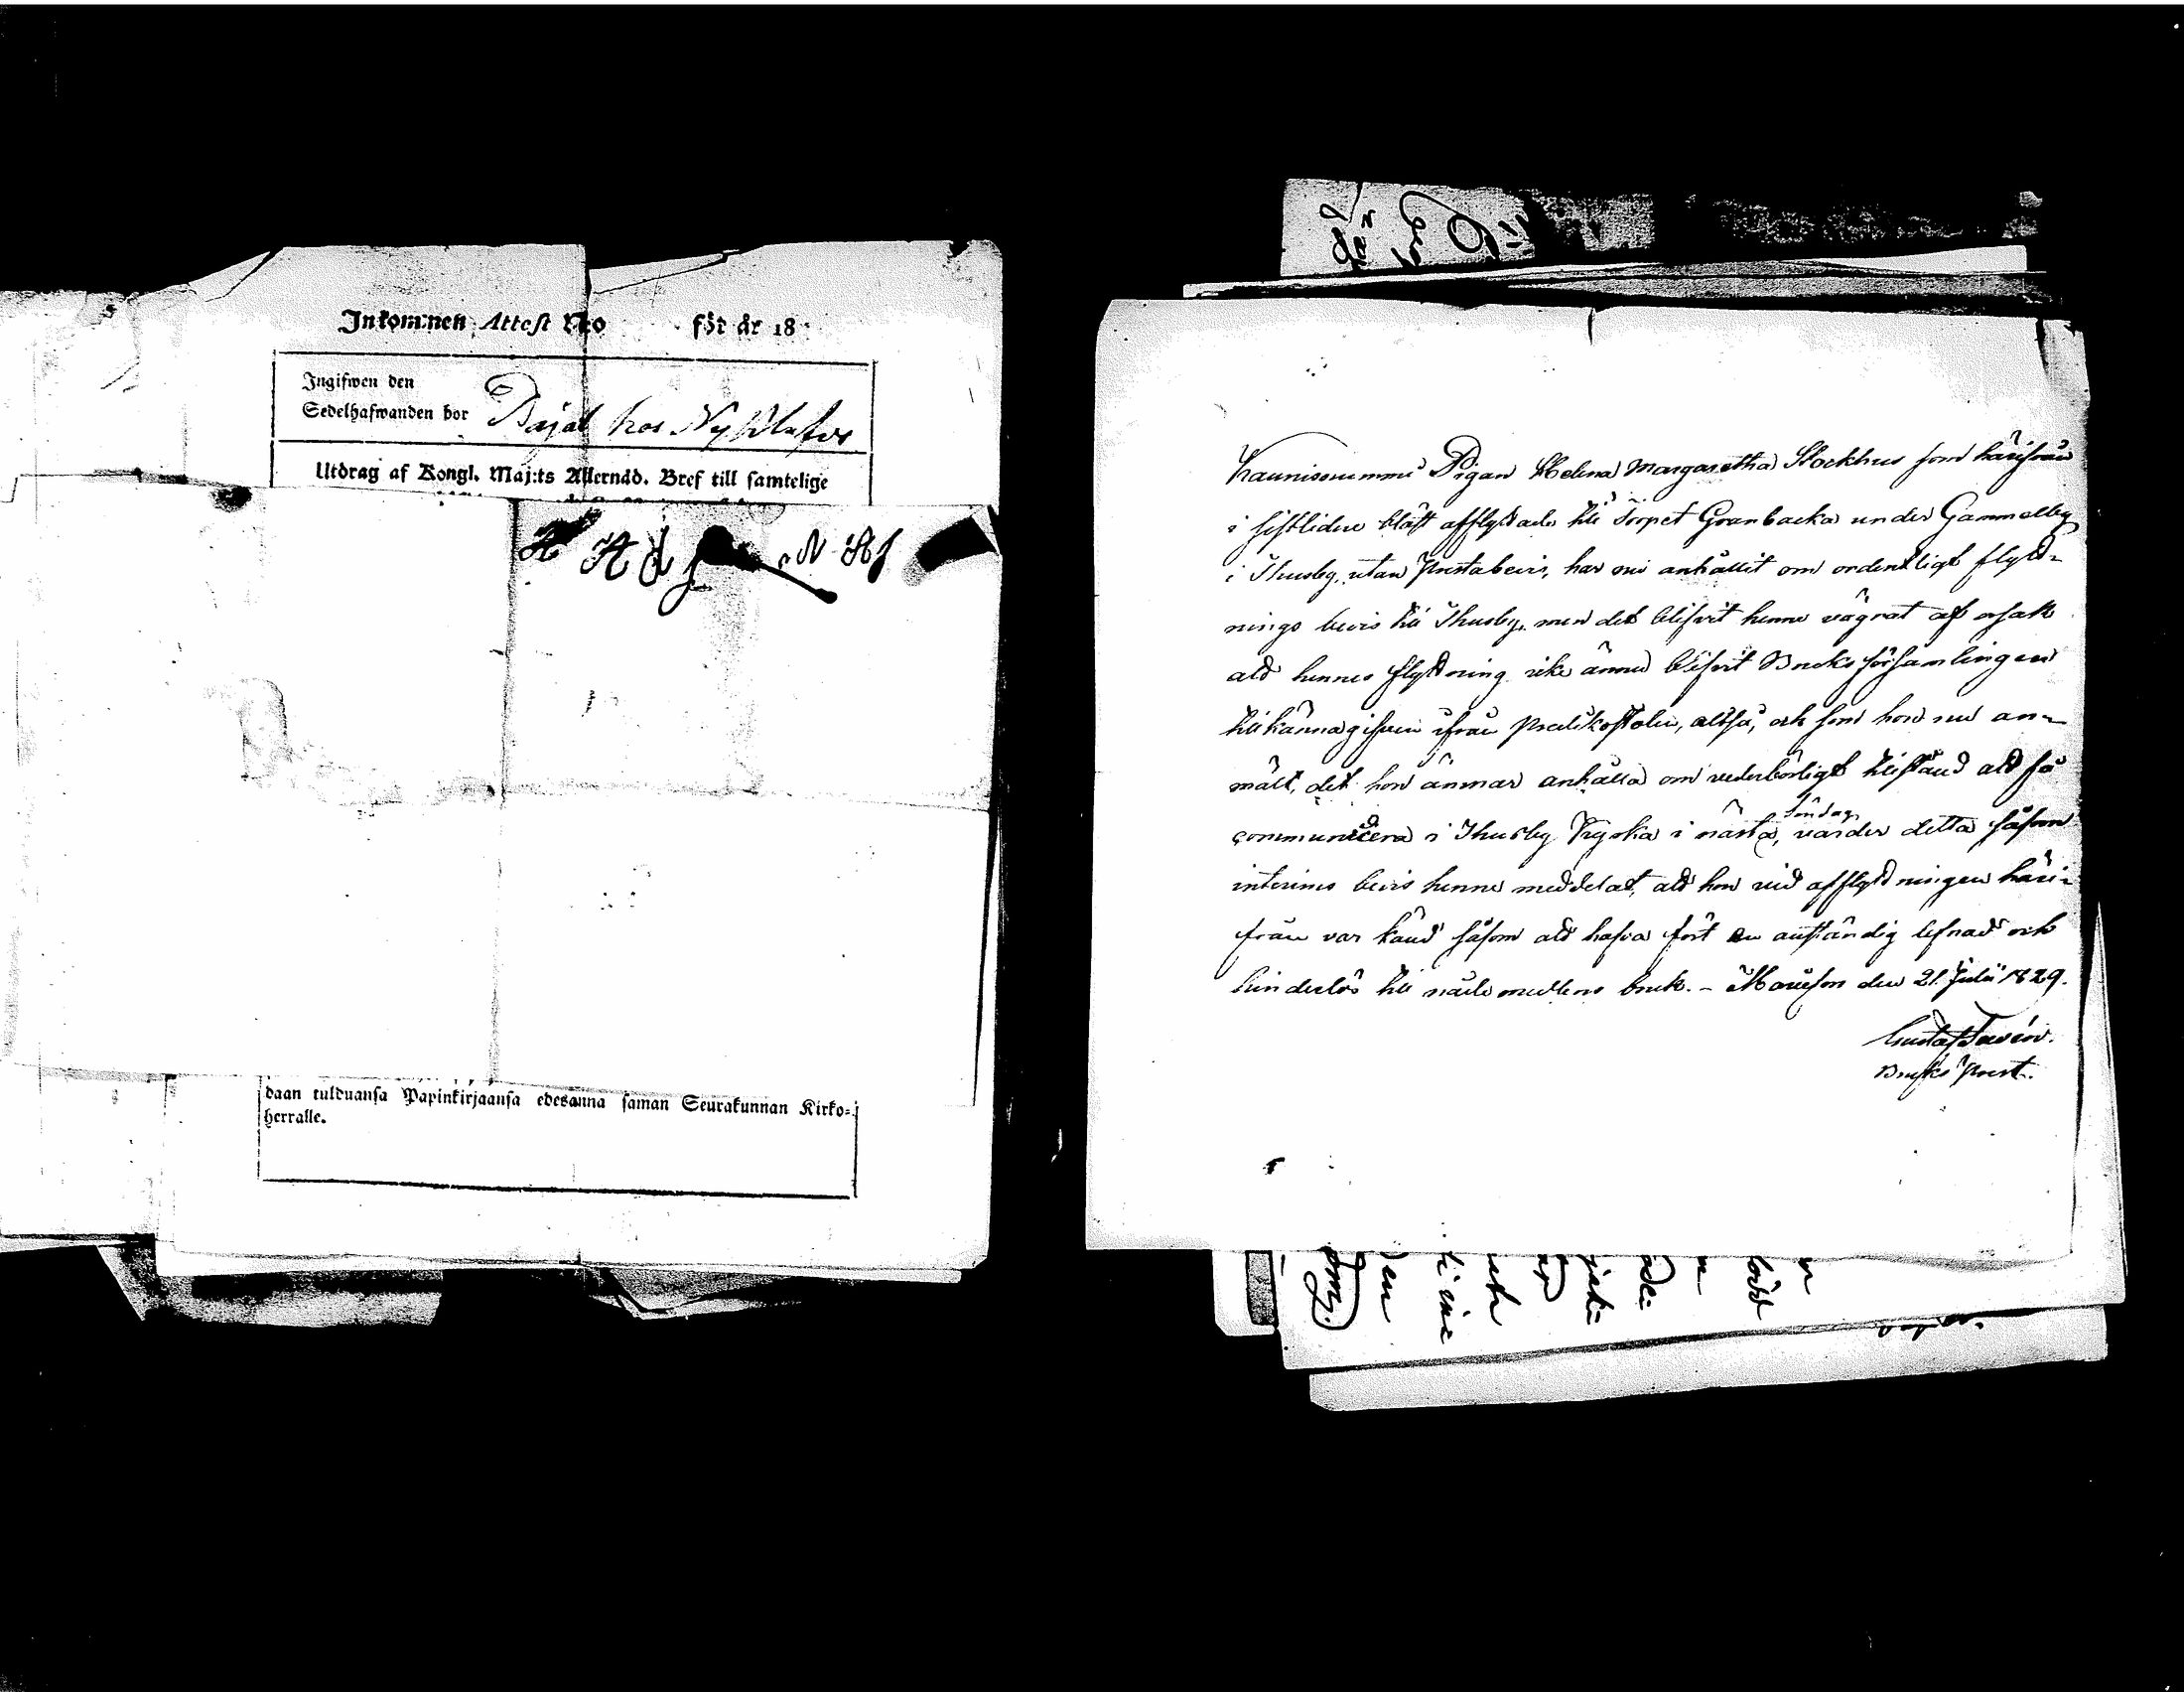 Inkommen Attest N:o för år 18
Ingifwen den
Sedelhafwanden bor Bajat hos
Utdrag af Kongl. Maj:ts Allernåd. Bref till samtelige
daan tulduansa Papinkirjaansa edesanna saman Seurakunnan Kirko-
herralle.
Pigan Helena Margaretha Stockhus som härifrån
i sistlidne höst afflyttade till Torpet Granbacka under Gammelby
i Thusby, utan Prestabevis, har nu anhållit om ordentligt flytt-
nings bevis till Thusby, men det blifvit henne vägrat af orsak
att hennes flyttning icke ännu blifvit Bruks församlingen
tillkännagifven ifrån Predikostolen, altså, och som hon nu an-
mält, det hon ämnar anhålla om vederbörligt tillstånd att få
communicera i Thusby Kyrka i nästa Söndag, varder detta såsom
interims bevis henne meddelat, att hon vid afflyttningen häri-
från var känd såsom att hafva fört en anständig lefnad och
hinderlös till nådemedlens bruk. - den 21 Julii 1829.
Gustaf
Bruks Prest.